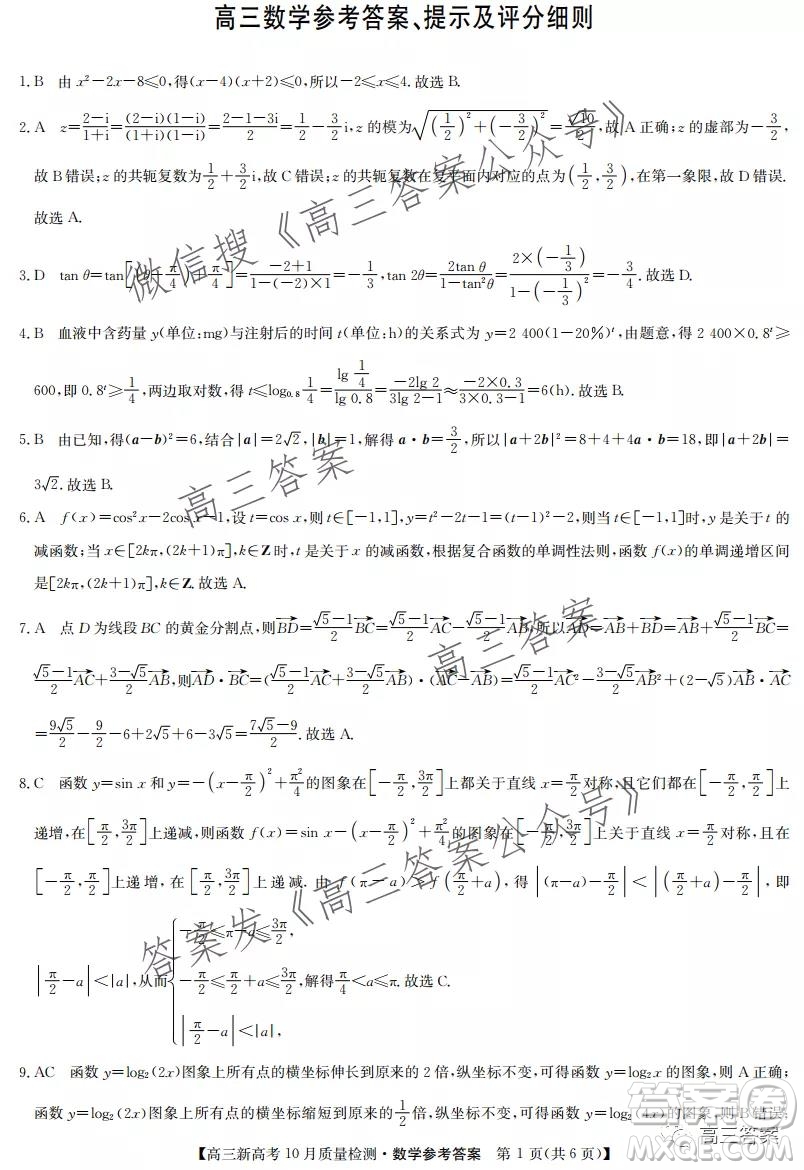 高三数学参考答案、提示及评分细则
1. B 由 x²－2x－8≤0,得(x－4)(x＋2)≤0,所以－2≤x≤4.故选 B.
2. A z=(2－i)/(1＋i)=(2－i)(1－i)/((1＋i)(1－i))=(2－1－3i)/2=1/2－3/2 i,z 的模为√((1/2)²＋(－3/2)²)=√10/2,故 A 正确;z 的虚部为－3/2,
故 B 错误;z 的共轭复数为1/2＋3/2 i,故 C 错误;z 的共轭复数在复平面内对应的点为(1/2,3/2),在第一象限,故 D 错误.
故选 A.
3. D tan θ=tan[(θ＋π/4)－π/4]=(－2＋1)/(1－(－2)×1)=－1/3,tan 2θ=2tan θ/(1－tan²θ)=2×(－1/3)/(1－(－1/3)²)=－3/4.故选 D.
4. B 血液中含药量 y(单位:mg)与注射后的时间 t(单位:h)的关系式为 y=2 400(1－20%)ᵗ,由题意,得 2 400×0.8ᵗ≥
600,即 0.8ᵗ≥1/4,两边取对数,得 t≤log₀.₈ 1/4=lg 1/4/lg 0.8=－2lg 2/(3lg 2－1)≈－2×0.3/(3×0.3－1)=6(h).故选 B.
5. B 由已知,得(a－b)²=6,结合|a|=2√2,|b|=1,解得 a·b=3/2,所以|a＋2b|²=8＋4＋4a·b=18,即|a＋2b|=
3√2.故选 B.
6. A f(x)=cos²x－2cos x－1,设 t=cos x,则 t∈[－1,1],y=t²－2t－1=(t－1)²－2,则当 t∈[－1,1]时,y 是关于 t 的
减函数;当 x∈[2kπ,(2k＋1)π],k∈Z 时,t 是关于 x 的减函数,根据复合函数的单调性法则,函数 f(x)的单调递增区间
是[2kπ,(2k＋1)π],k∈Z.故选 A.
7. A 点 D 为线段 BC 的黄金分割点,则BD→=(√5－1)/2 BC→=(√5－1)/2 AC→－(√5－1)/2 AB→,所以AD→=AB→＋BD→=AB→＋(√5－1)/2 BC→=
(√5－1)/2 AC→＋(3－√5)/2 AB→,则AD→·BC→=((√5－1)/2 AC→＋(3－√5)/2 AB→)·(AC→－AB→)=(√5－1)/2 AC→²－(3－√5)/2 AB→²＋(2－√5)AB→·AC→
=9√5/2－9/2－6＋2√5＋6－3√5=(7√5－9)/2.故选 A.
8. C 函数 y=sin x 和 y=－(x－π/2)²＋π²/4的图象在[－π/2,3π/2]上都关于直线 x=π/2对称,且它们都在[－π/2,π/2]上
递增,在[π/2,3π/2]上递减,则函数 f(x)=sin x－(x－π/2)²＋π²/4的图象在[－π/2,3π/2]上关于直线 x=π/2对称,且在
[－π/2,π/2]上递增,在[π/2,3π/2]上递减.由 f(π－a)>f(π/2＋a),得|(π－a)－π/2|<|(π/2＋a)－π/2|,即
|π/2－a|<|a|,从而{－π/2≤π－a≤3π/2, －π/2≤π/2＋a≤3π/2, |π/2－a|<|a|,解得π/4<a≤π.故选 C.
9. AC 函数 y=log₂(2x)图象上所有点的横坐标伸长到原来的 2 倍,纵坐标不变,可得函数 y=log₂x 的图象,则 A 正确;
函数 y=log₂(2x)图象上所有点的横坐标缩短到原来的1/2倍,纵坐标不变,可得函数 y=log₂(4x)的图象,则 B 错误;
【高三新高考 10 月质量检测·数学参考答案 第 1 页(共 6 页)】
微信搜《高三答案公众号》
高三答案
高三答案
答案发《高三答案公众号》
答案圈
高三答案